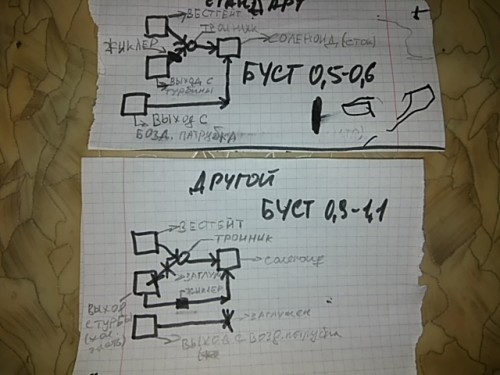 СТАНДАРТ
ВЕСТГЕЙТ
ТРОИНИК
ЖИКЛЕР
СОЛЕНОИД (сток)
ВЫХОД С
ТУРБИНЫ
БУСТ 0,5-0,6
ВЫХОД С
ВОЗД. ПАТРУБКА
ДРУГОЙ
БУСТ 0,9-1,1
ВЕСТГЕЙТ
ТРОИНИК
СОЛЕНОИД
ЗАГЛУШ
ЖИКЛЕР
ВЫХОД
С ТУРБЫ
ЗАГЛУШЕН
ВЫХОД С ВОЗД. ПАТРУБКА